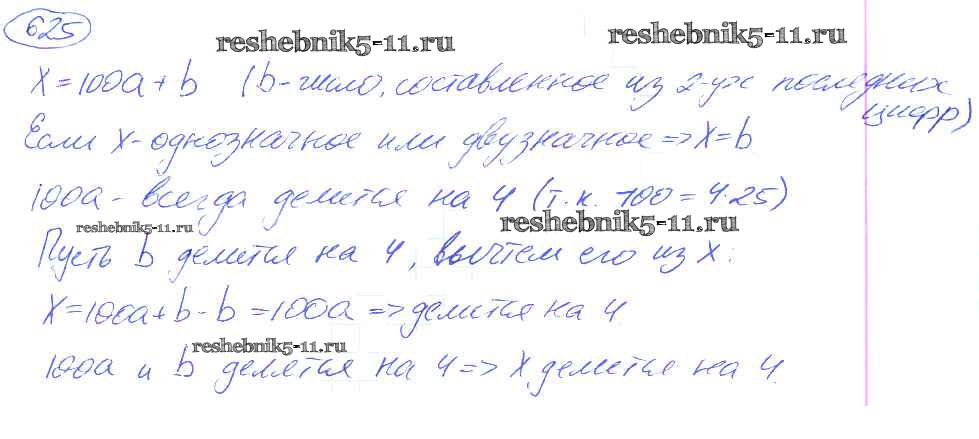 625
reshebnik5-11.ru reshebnik5-11.ru
X=100a+b (b-число, составленное из 2-ух последних
цифр)
Если X-однозначное или двузначное => X=b
100a - всегда делится на 4 (т.к. 100=4·25)
reshebnik5-11.ru reshebnik5-11.ru
Пусть b делится на 4, вычтем его из X:
X=100a+b-b=100a => делится на 4
reshebnik5-11.ru
100a и b делятся на 4 => X делится на 4.